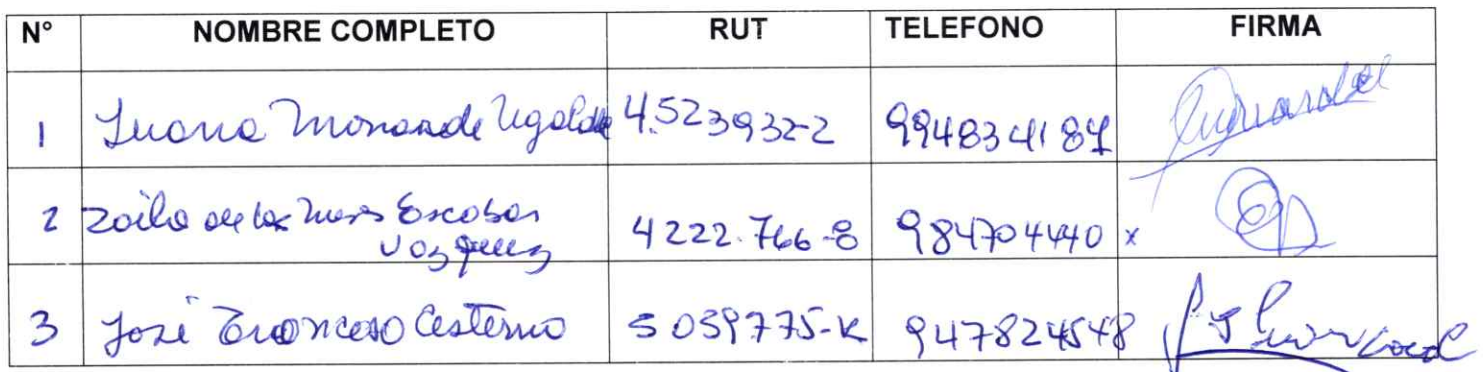 N° NOMBRE COMPLETO RUT TELEFONO FIRMA
1 Juana Ugalde 4.523932-2 994834184
2 Zoila de las Escobar 4222.766-8 984704440 x
3 José Troncoso Cisterna 5039775-K 947824548